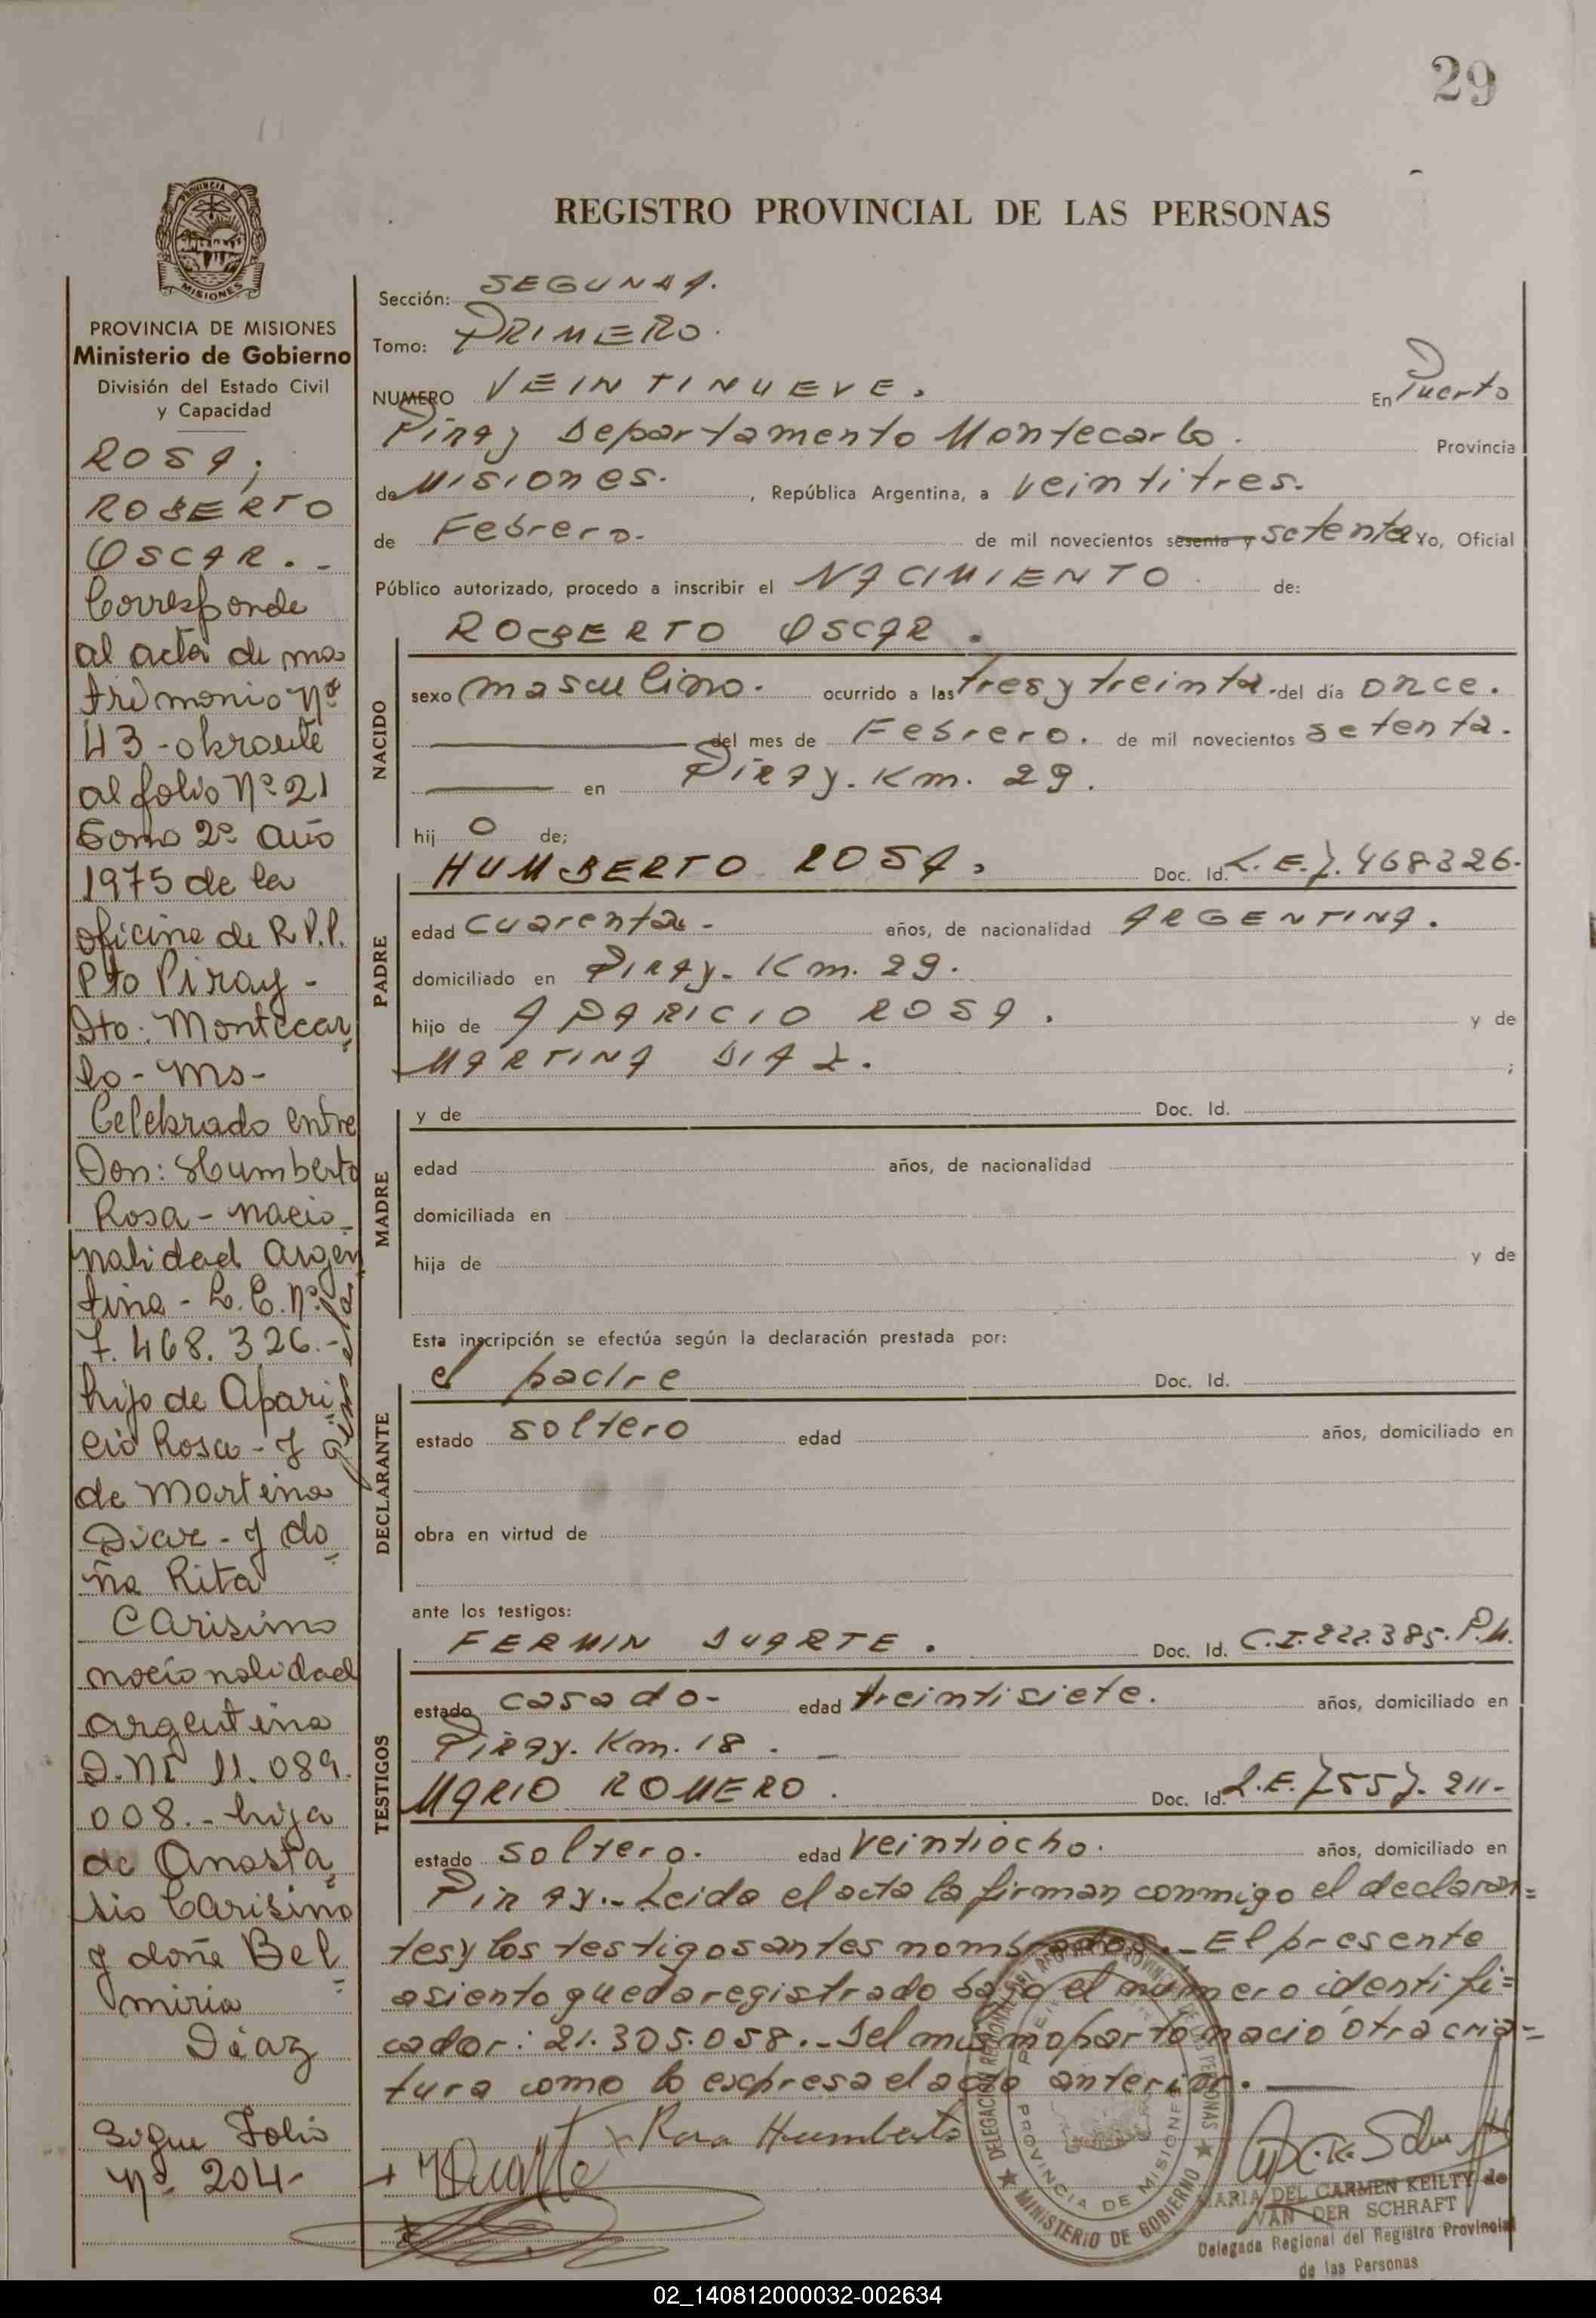 29
PROVINCIA DE MISIONES
REGISTRO PROVINCIAL DE LAS PERSONAS
PROVINCIA DE MISIONES
Ministerio de Gobierno
División del Estado Civil
y Capacidad
ROSA,
ROBERTO
OSCAR.-
Corresponde
al acta de ma
trimonio Nº
43-obrante
al folio Nº 21
Tomo 2º año
1975 de la
oficina de R.P.P.
Pto Piray-
Dto: Montecar
lo-Ms-
Celebrado entre
Don: Humberto
Rosa-nacio
nalidad Argen
tina-L.E. Nº
7.468.326.-
hijo de Apari
cio Rosa-y
de Martina
Diaz-y do
ña Rita
Carisimo
nacionalidad
argentina
D.NI 11.089.
008.-hija
de Anasta
sio Carisimo
y doña Bel
miria
Diaz
Sigue Folio
Nº 204-
Sección: SEGUNDA.
Tomo: PRIMERO.
NUMERO VEINTINUEVE. En Puerto
Piray Departamento Montecarlo. Provincia
de Misiones. , República Argentina, a veintitres.
de Febrero. de mil novecientos sesenta y setenta Yo, Oficial
Público autorizado, procedo a inscribir el NACIMIENTO. de:
NACIDO
ROBERTO OSCAR.
sexo masculino. ocurrido a las tres y treinta. del día once.
del mes de Febrero. de mil novecientos setenta.
en Piray. Km. 29.
hij o de;
PADRE
HUMBERTO ROSA. Doc. Id. L.E.7.468.326.
edad cuarenta- años, de nacionalidad ARGENTINA.
domiciliado en Piray. Km. 29.
hijo de APARICIO ROSA. y de
MARTINA DIAZ. ;
MADRE
y de Doc. Id.
edad años, de nacionalidad
domiciliada en
hija de y de
Esta inscripción se efectúa según la declaración prestada por:
DECLARANTE
el padre Doc. Id.
estado soltero edad años, domiciliado en
obra en virtud de
ante los testigos:
TESTIGOS
FERMIN DUARTE. Doc. Id. C.I.222.385.P.M.
estado casado- edad treintisiete. años, domiciliado en
Piray. Km. 18.-
MARIO ROMERO. Doc. Id. L.E.7557.211-
estado soltero. edad veintiocho. años, domiciliado en
Piray.-Leida el acta la firman conmigo el declaran=
tes y los testigos antes nombrados.-El presente
asiento queda registrado bajo el numero identifi=
cador: 21.305.058.-Del mismo parto nacio otra cria=
tura como lo expresa el acta anterior.
Rosa Humberto
DELEGACION REGIONAL DEL REGISTRO PROVINCIAL DE LAS PERSONAS
MINISTERIO DE GOBIERNO
PROVINCIA DE MISIONES
MARIA DEL CARMEN KEILTY de
VAN DER SCHRAFT
Delegada Regional del Registro Provincial
de las Personas
02_140812000032-002634